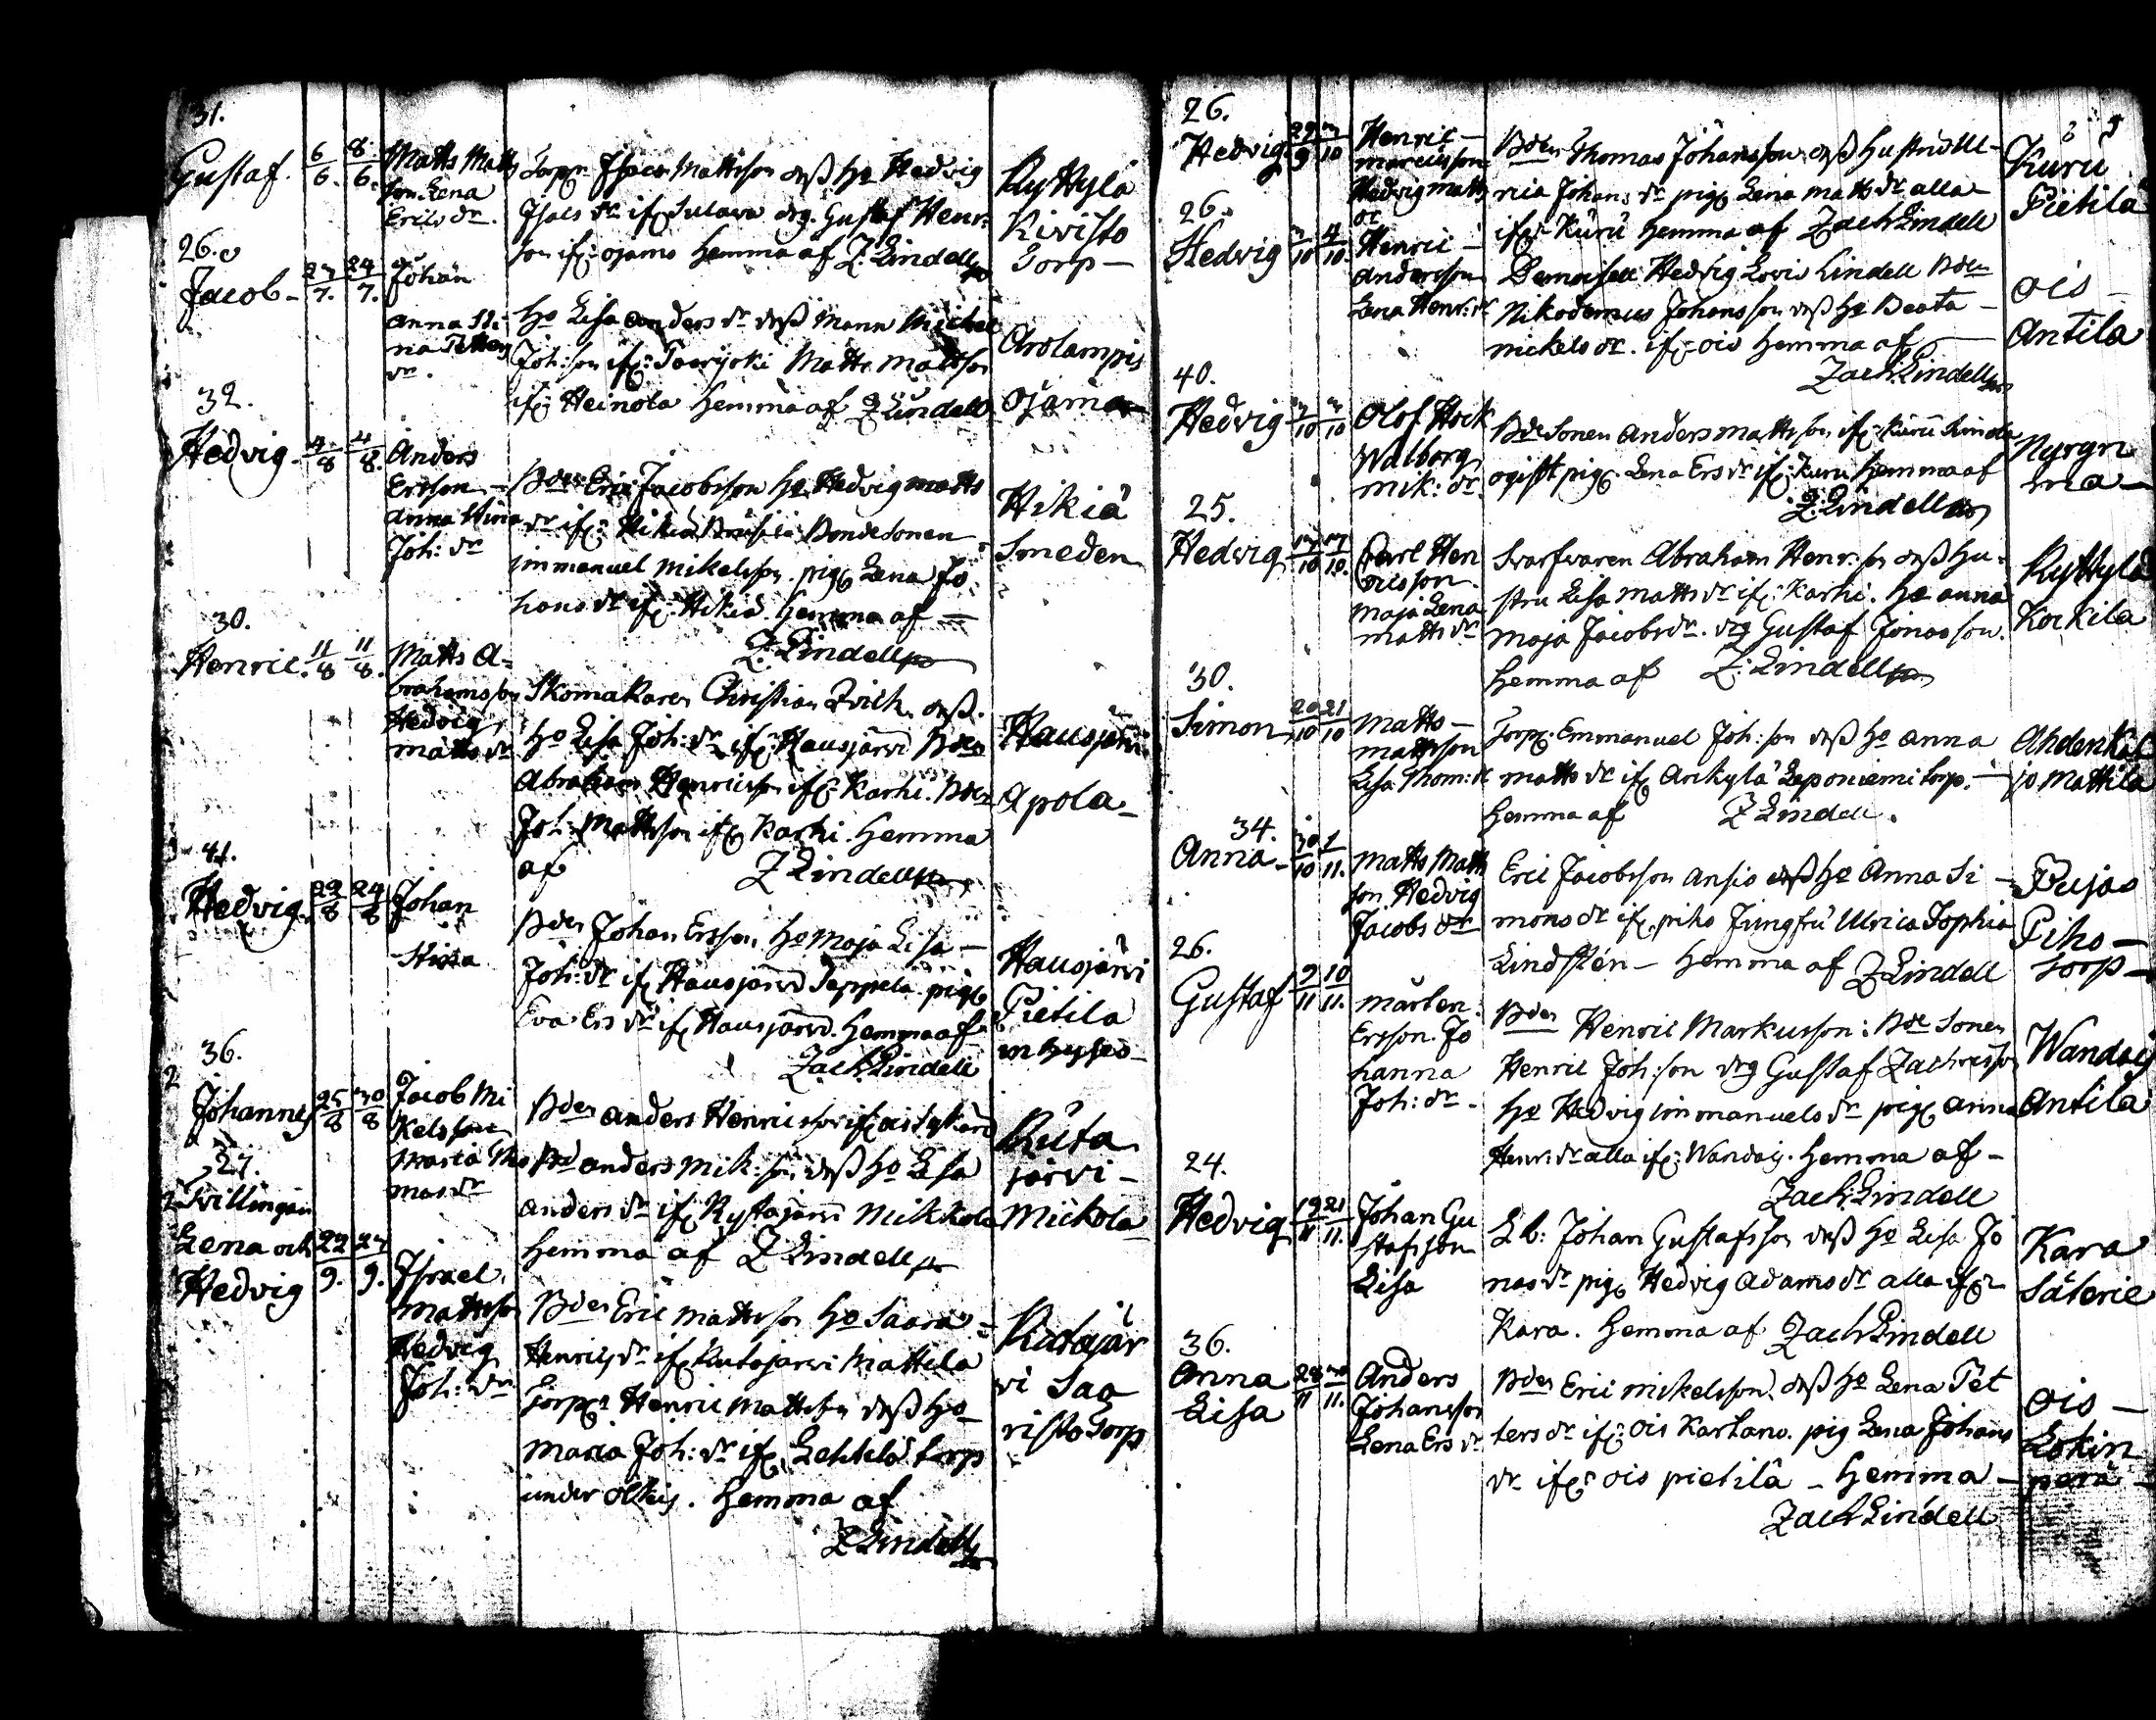 31.
Gustaf. 6/6. 8/6. Matts Matts
son. Lena
Erics dr.
Torpr. Isaac Mattsson dess ho Hedvig
Isaks dr ifr. Sulava drg. Gustaf Henr:
son ifr: ojams hemma af Z. Lindell
Ryttylä
Kivisto
Torp
26.
Jacob 27/7. 29/7. Johan
Anna Sti
na Petters
dr.
ho Lisa Anders dr dess Mann Michel
Joh: son ifr: Matts Mattson
ifr: Heinola hemma af Z Lindell
Arolampis
Ojama
32.
Hedvig 4/8 4/8. Anders
Ersson
Anna Stina
Joh: dr
Bden Eric Jacobsson ho Hedvig Matts
dr ifr: Hikiä Bondesonen
immanuel Mikelsson. pig. Lena Jo
hans dr ifr: Hikiä. hemma af
Z: Lindell
Hikiä
Smeden
30.
Henric. 11/8 11/8. Matts A=
brahamsson
Hedvig
Matts dr
Skomakaren Christian dess
ho Lisa Joh: dr ifr: Hausjärvi Bden
Abraham Henricsson ifr: Karhi. Bden
Joh: Mattsson ifr Karhi. hemma
af Z Lindell
Hausjärvi
Apola
41.
Hedvig. 29/8 Johan
Stina
Bden Johan Ersson ho Maja Lisa
Joh: dr ifr Hausjärvi Seppelä pig.
Eva Ers dr ifr Hausjärvi. hemma af
Zach: Lindell
Hausjärvi
Pietila
inhyses
36.
Johannes 25/8 30/8 Jacob Mi
kelsson
Maria Tho
mas dr
Bden Anders Henricsson ifr
Bd Anders Mik: son dess ho Lisa
Anders dr ifr Rytajärvi Mikkola
hemma af Z Lindell
Ruta
järvi
Mickola
27.
Tvillingar
Lena och
Hedvig 22/9. 27/9. Israel
Mattsson
Hedvig
Joh: dr
Bden Eric Mattsson ho Saara
Henrics dr ifr Rutajärvi Mattila
Torpr Henric Mattsson dess ho
Maria Joh: dr ifr. Lehtelä torp
under . hemma af
Z Lindell
Rutajär
vi Saa
risto Torp
26.
Hedvig 29/9 Henric
marcusson
Hedvig Matts
dr
Bden Thomas Johansson dess hustru Ul-
rica Johans dr pig Lena Matts dr alla
ifr: Kuru hemma af Zach Lindell
Kuru
Pietilä
26.
Hedvig 4/10. Henric
Andersson
Lena Henr: dr
Demoisell Hedvig Lovis Lindell Bden
Nikodemus Johansson dess ho Beata
mickels dr. ifr: ois hemma af
Zach: Lindell
Ois
Antila
40.
Hedvig Olof Höck
Walborg
Mik: dr.
Bdesonen Anders Mattsson ifr: Kuru
ogift pig. Lena Ers dr ifr: Kuru hemma af
Z: Lindell
Nyrgn
ma
25.
Hedvig 17/10 17/10. Carl Hen
ricsson
Maja Lena
Matts dr
Svarfvaren Abraham Henr: son dess hu-
stru Lisa Matts dr ifr: Karhi. ho anna
Maja Jacobs dr. drg Gustaf Jonasson.
hemma af Z: Lindell
Ryttylä
Kockila
30.
Simon 20/10 21/10 Matts
Mattsson
Lisa Thom: dr
Torpr. Emmanuel Joh: son dess ho anna
Matts dr ifr Arikylä Leponiemi torp.
hemma af Z Lindell.
Ahdenkal
jo Mattila
34.
Anna 30/10 1/11. Matts Matts
son Hedvig
Jacobs dr
Eric Jacobsson Ansio dess ho Anna Si
mons dr ifr. piho Jungfru Ulrica Sophia
Lindsten hemma af Z Lindell
Pujas
Piho
Torp
26.
Gustaf 9/11 10/11. Mårten
Ersson. Jo
hanna
Joh: dr.
Bden Henric Markusson: Bde sonen
Henric Joh: son drg Gustaf Zachrisson
ho Hedvig immanuels dr pig. anna
Henr: dr alla ifr: Wandois. hemma af
Zach: Lindell
Wandois
Antila
24.
Hedvig 19/11 21/11. Johan Gu
stafsson
Lisa
Johan Gustafsson dess ho Lisa Jo
nas dr pig. Hedvig Adams dr alla ifr
Kara. hemma af Zach Lindell
Kara
Säterie
36.
Anna
Lisa 28/11 30/11. Anders
Johansson
Lena Ers dr
Bden Eric Mikelsson. dess ho Lena Pet
ters dr ifr: ois Kartano. pig Lena Johans
dr ifr: ois pietilä hemma
Zach Lindell
Ois
Lokin
perä